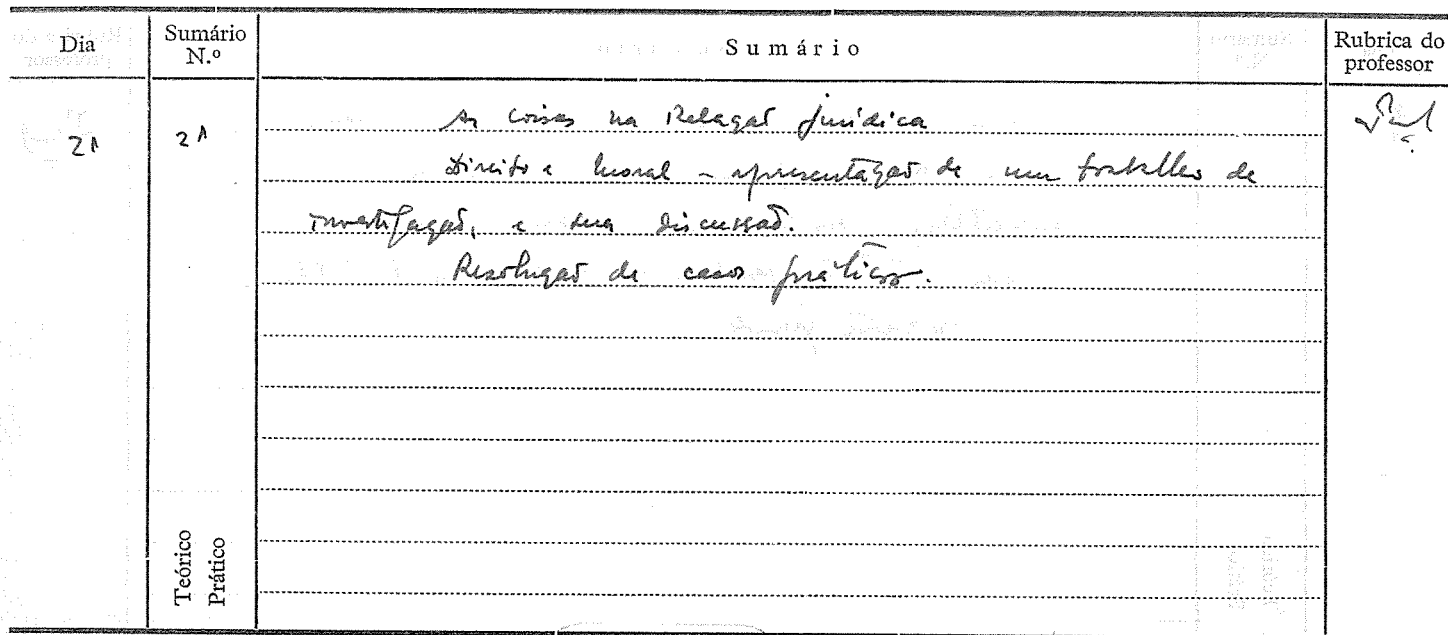 Dia
Sumário N.º
Sumário
Rubrica do professor
21
21
As coisas na Relação jurídica
Direito e moral - apresentação de um trabalho de
investigação, e sua discussão.
Resolução de casos práticos.
Teórico
Prático